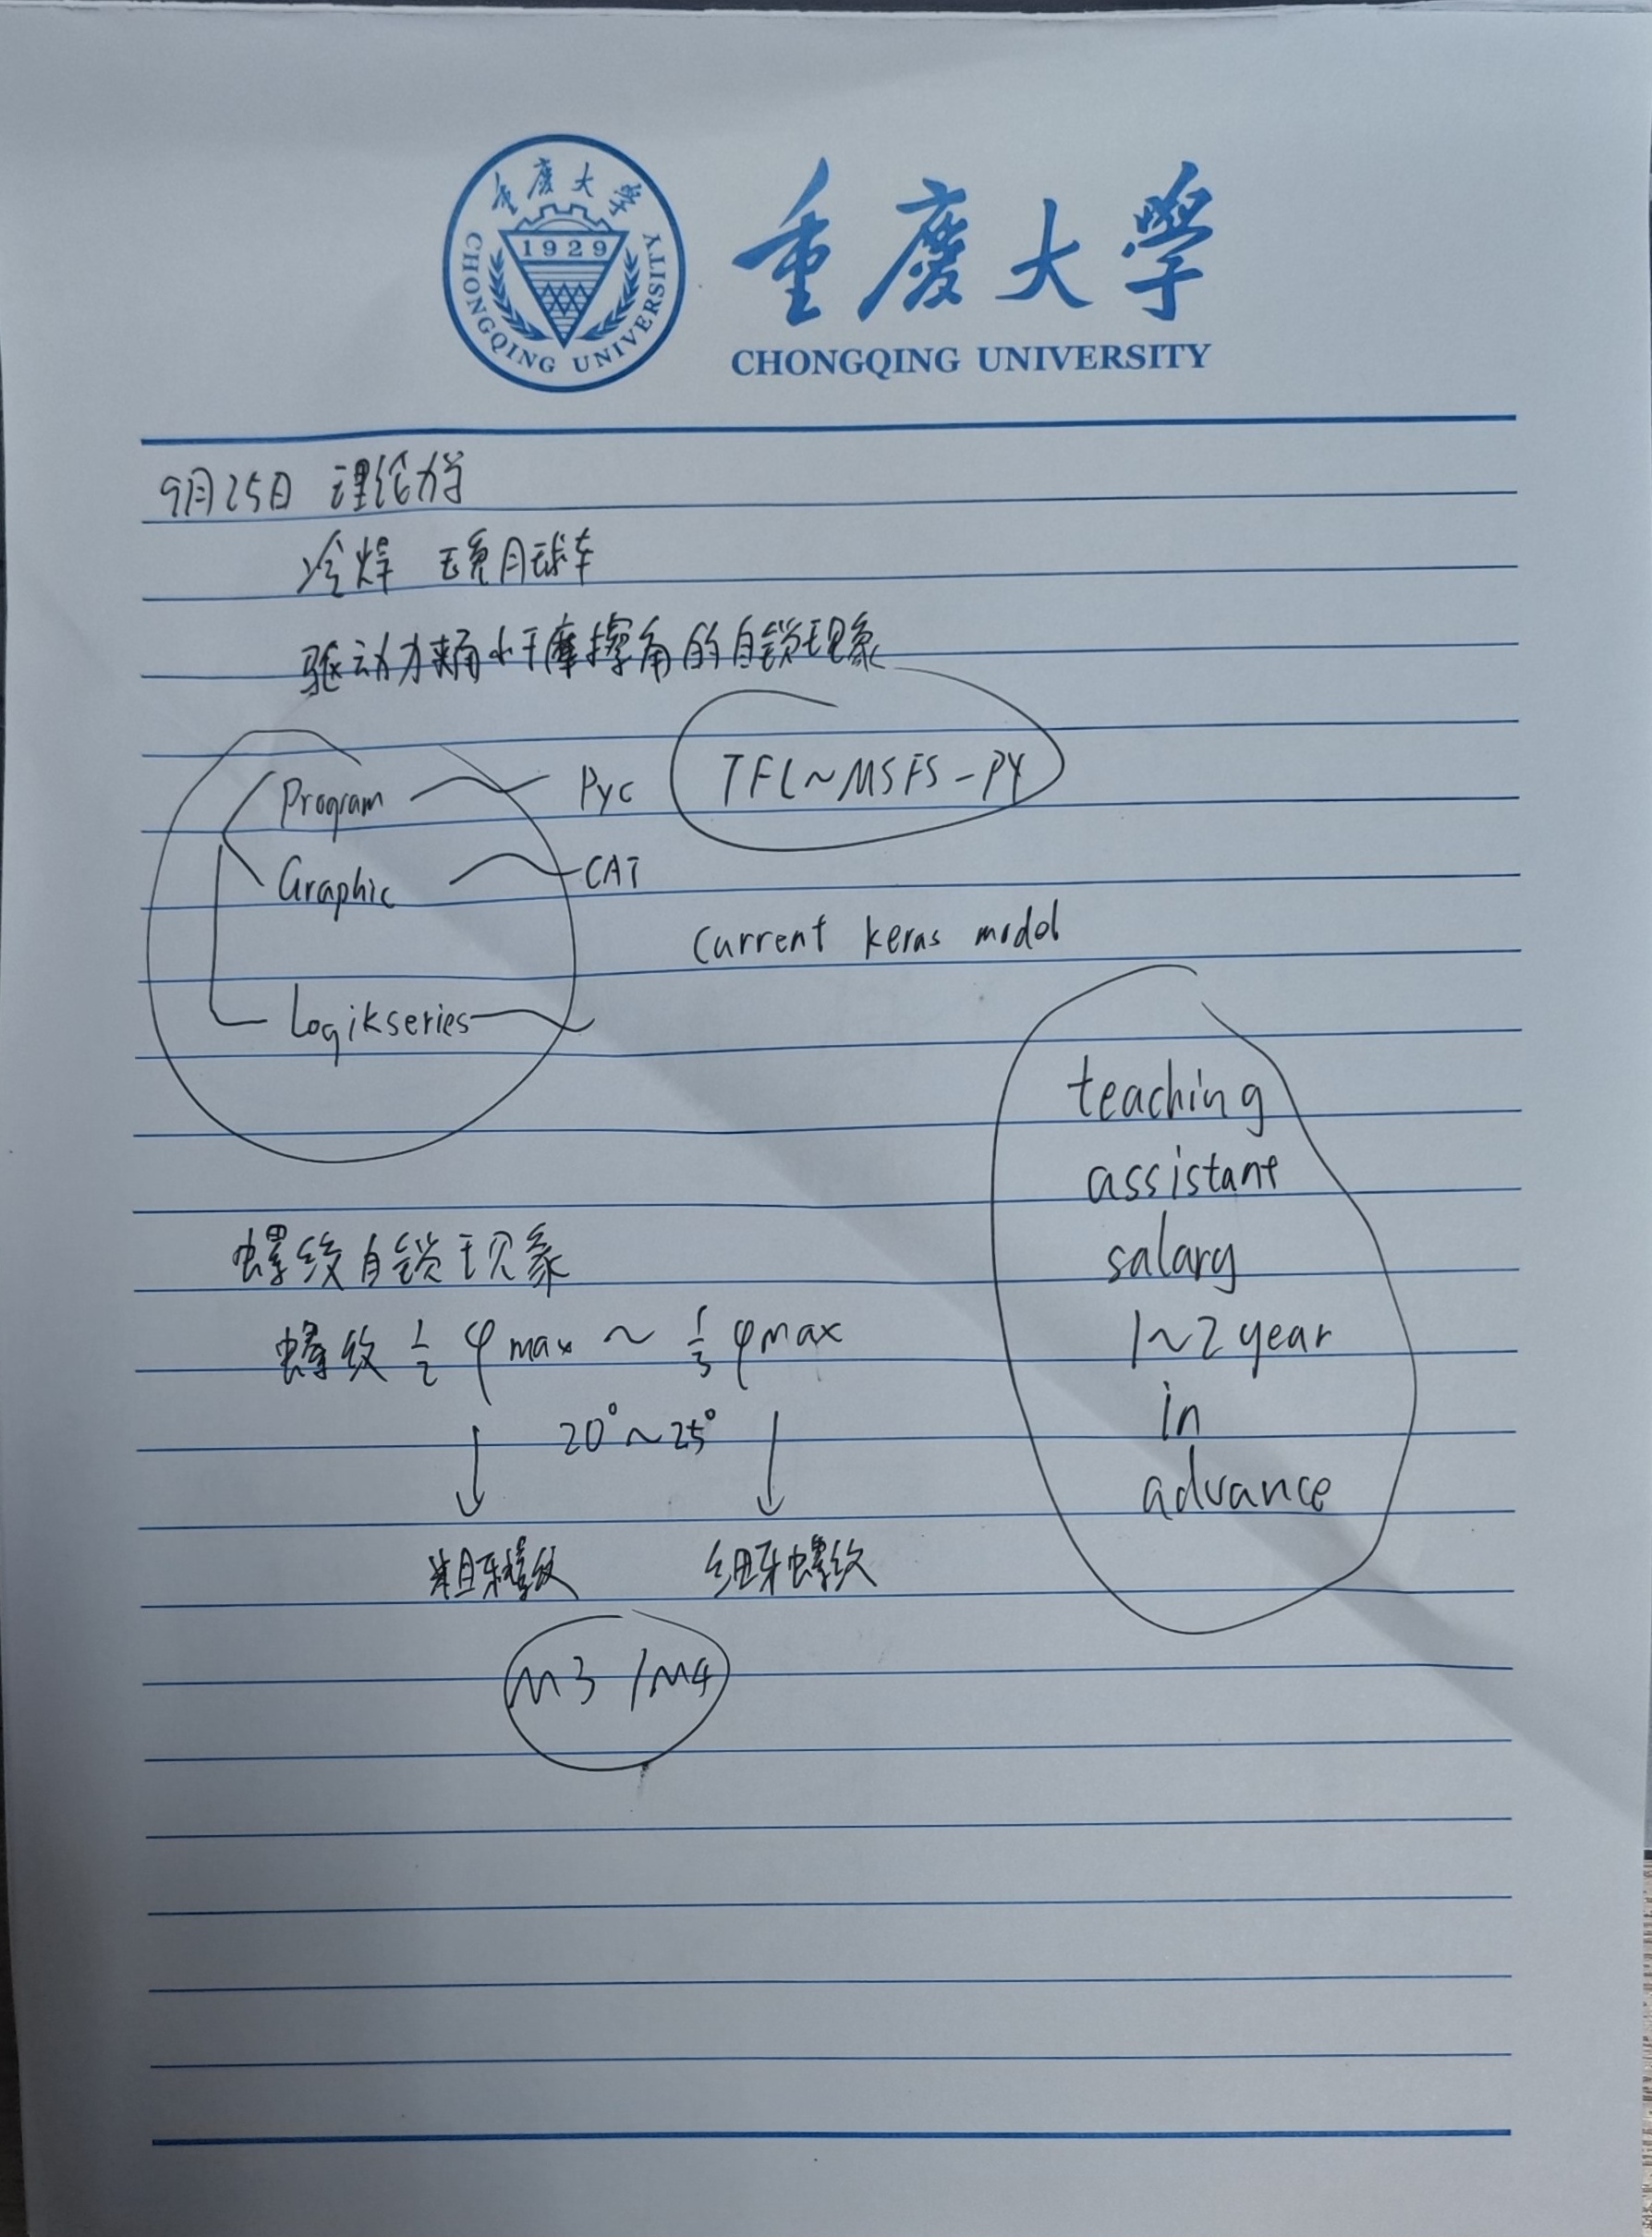 重庆大学
1929
CHONGQING UNIVERSITY
重慶大學
CHONGQING UNIVERSITY
9月25日 理论力学
冷焊 玉兔月球车
驱动力夹角小于摩擦角的自锁现象
Program Pyc TFL~MSFS-PY
Graphic CAT
Current keras model
Logikseries
teaching
assistant
salary
1~2 year
in
advance
螺纹自锁现象
螺纹 1/2 φmax ~ 1/3 φmax
20°~25°
粗牙螺纹 细牙螺纹
M3 / M4